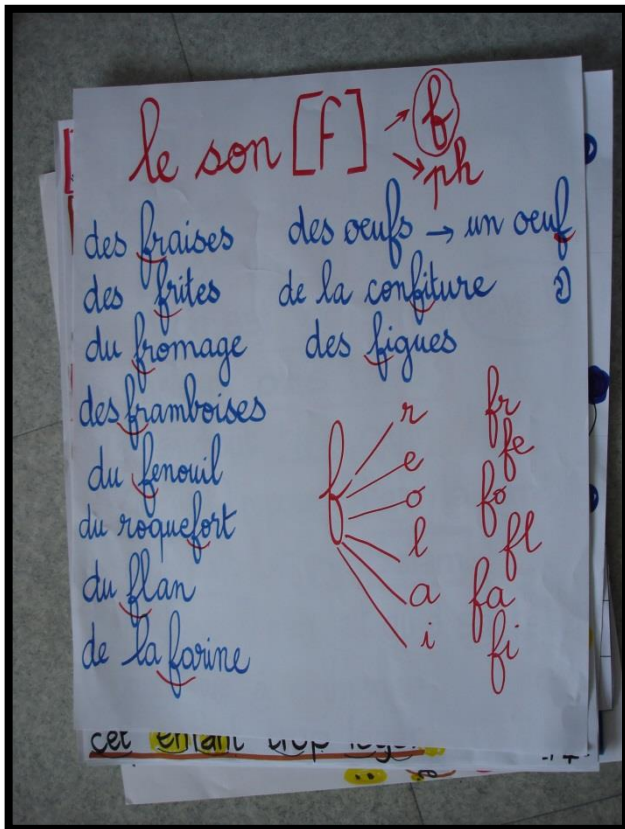 le son [f] → f
→ ph
des fraises
des frites
du fromage
des framboises
du fenouil
du roquefort
du flan
de la farine
des oeufs → un oeuf
de la confiture
des figues
f
r
e
o
l
a
i
fr
fe
fo
fl
fa
fi
cet enfant trop